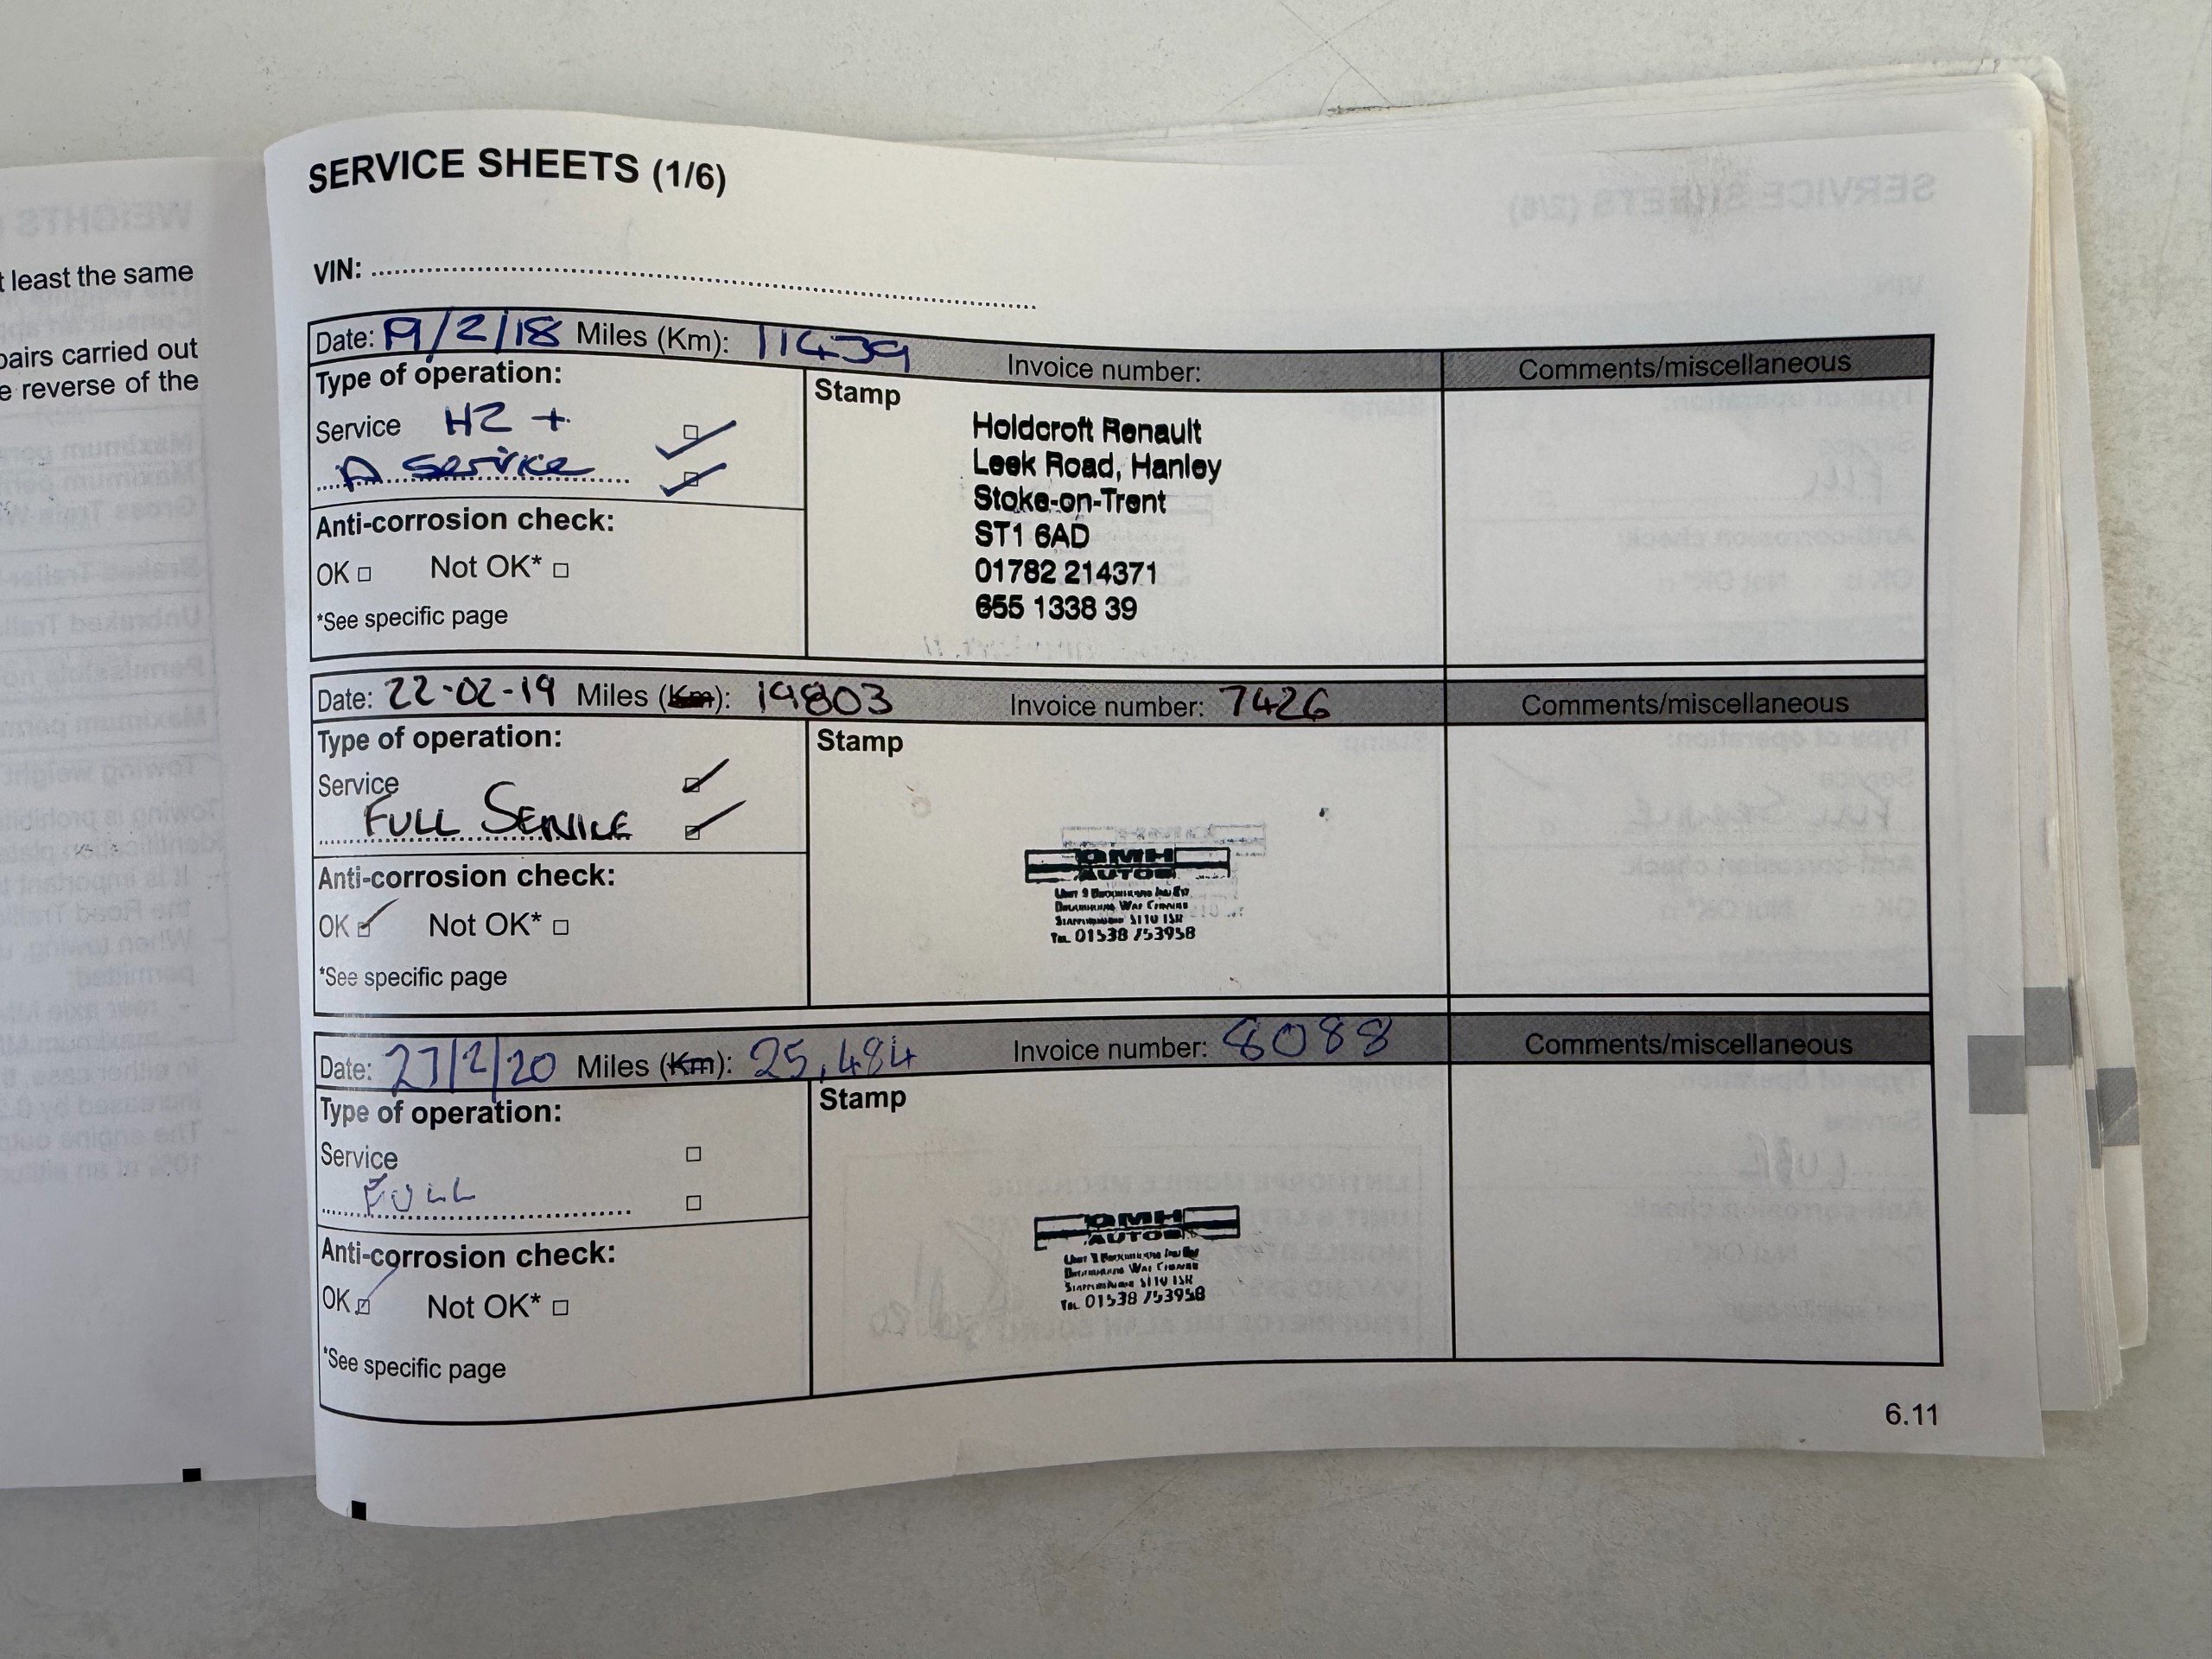 t least the same
pairs carried out
e reverse of the
SERVICE SHEETS (1/6)
VIN:
Date: 19/2/18 Miles (Km): 11439 Invoice number: Comments/miscellaneous
Type of operation:
Service H2 +
A Service
Stamp
Holdcroft Renault
Leek Road, Hanley
Stoke-on-Trent
ST1 6AD
01782 214371
655 1338 39
Anti-corrosion check:
OK Not OK*
*See specific page
Date: 22-02-19 Miles (Km): 19803 Invoice number: 7426 Comments/miscellaneous
Type of operation:
Service
FULL SERVICE
Stamp
AUTOS
Tel 01538 753958
Anti-corrosion check:
OK Not OK*
*See specific page
Date: 27/2/20 Miles (Km): 25,484 Invoice number: 8088 Comments/miscellaneous
Type of operation:
Service
FULL
Stamp
AUTOS
Tel 01538 753958
Anti-corrosion check:
OK Not OK*
*See specific page
6.11